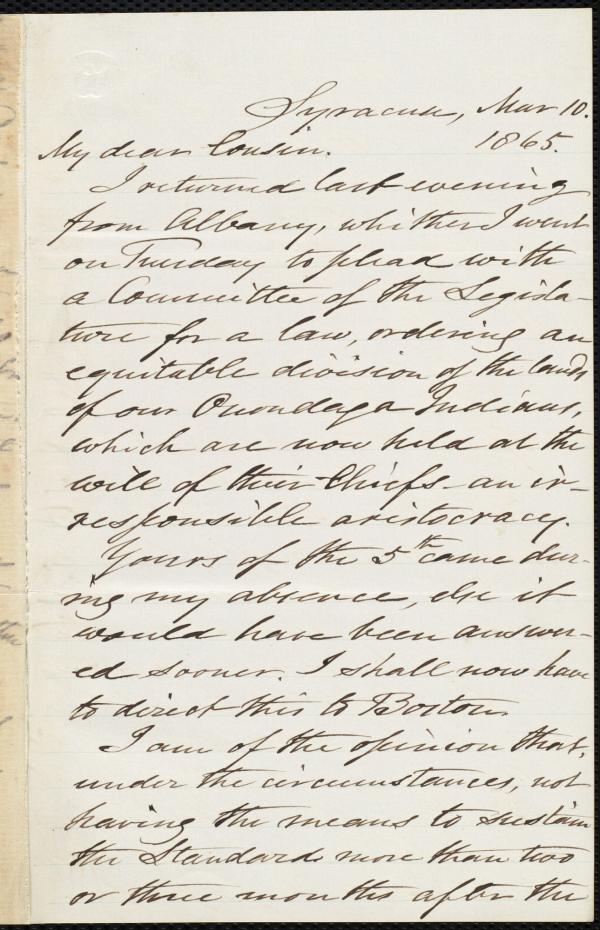 Syracuse, Mar 10.
1865.
My dear Cousin.
I returned last evening
from Albany, whither I went
on Tuesday to plead with
a Committee of the Legisla-
ture for a law, ordering an
equitable division of the lands
of our Onondaga Indians,
which are now held at the
will of their Chiefs - an ir-
responsible aristocracy.
Yours of the 5th came dur-
ing my absence, else it
would have been answer-
ed sooner. I shall now have
to direct this to Boston.
I am of the opinion that,
under the circumstances, not
having the means to sustain
the Standard more than two
or three months after the